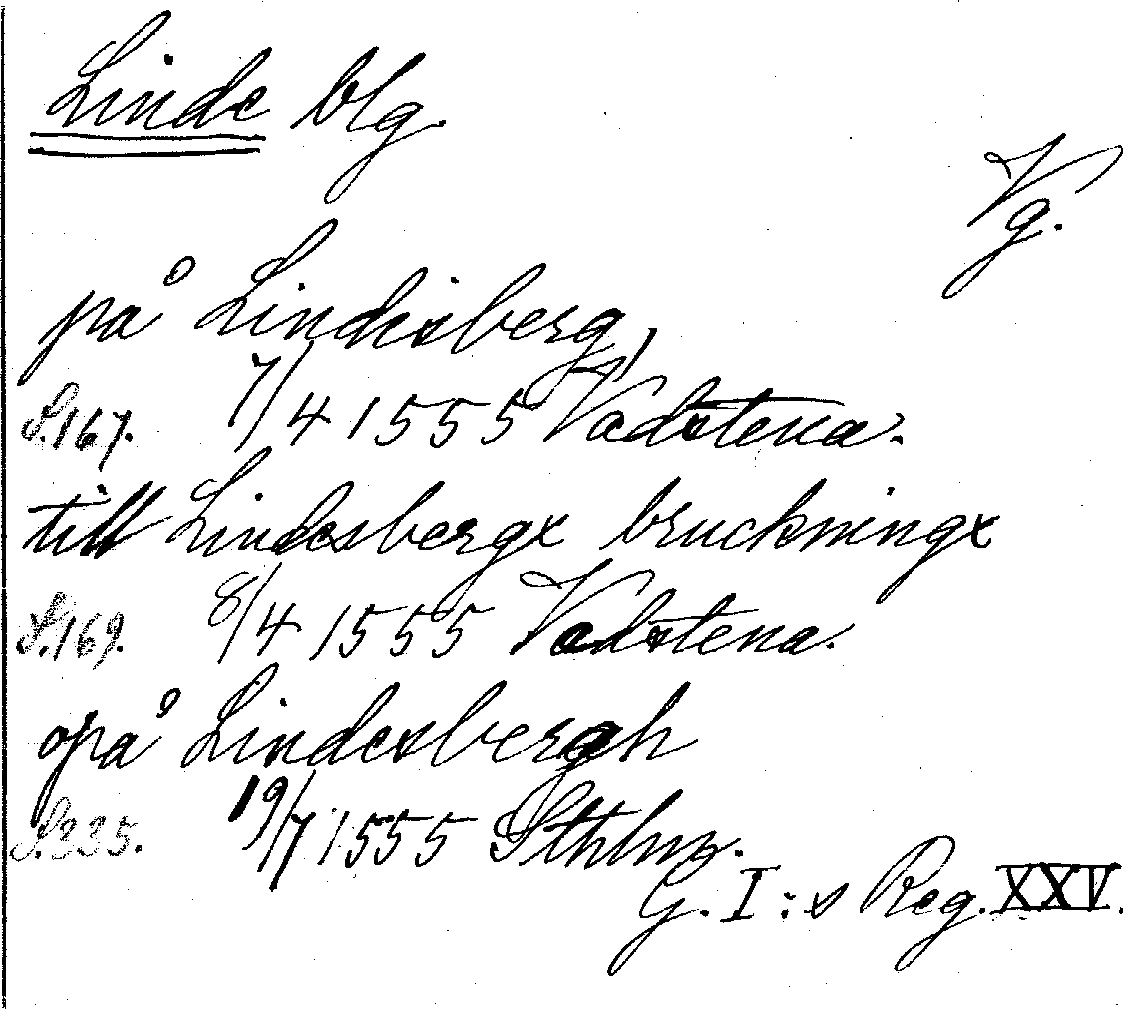 Linde blg.
Vg.
på Lindesberg,
S. 167. 7/4 1555 Vadstena.
till Lindesbergx bruckningx
S. 169. 8/4 1555 Vadstena.
opå Lindesbergh
S. 335. 19/7 1555 Sthlm.
G. I:s Reg. XXV.